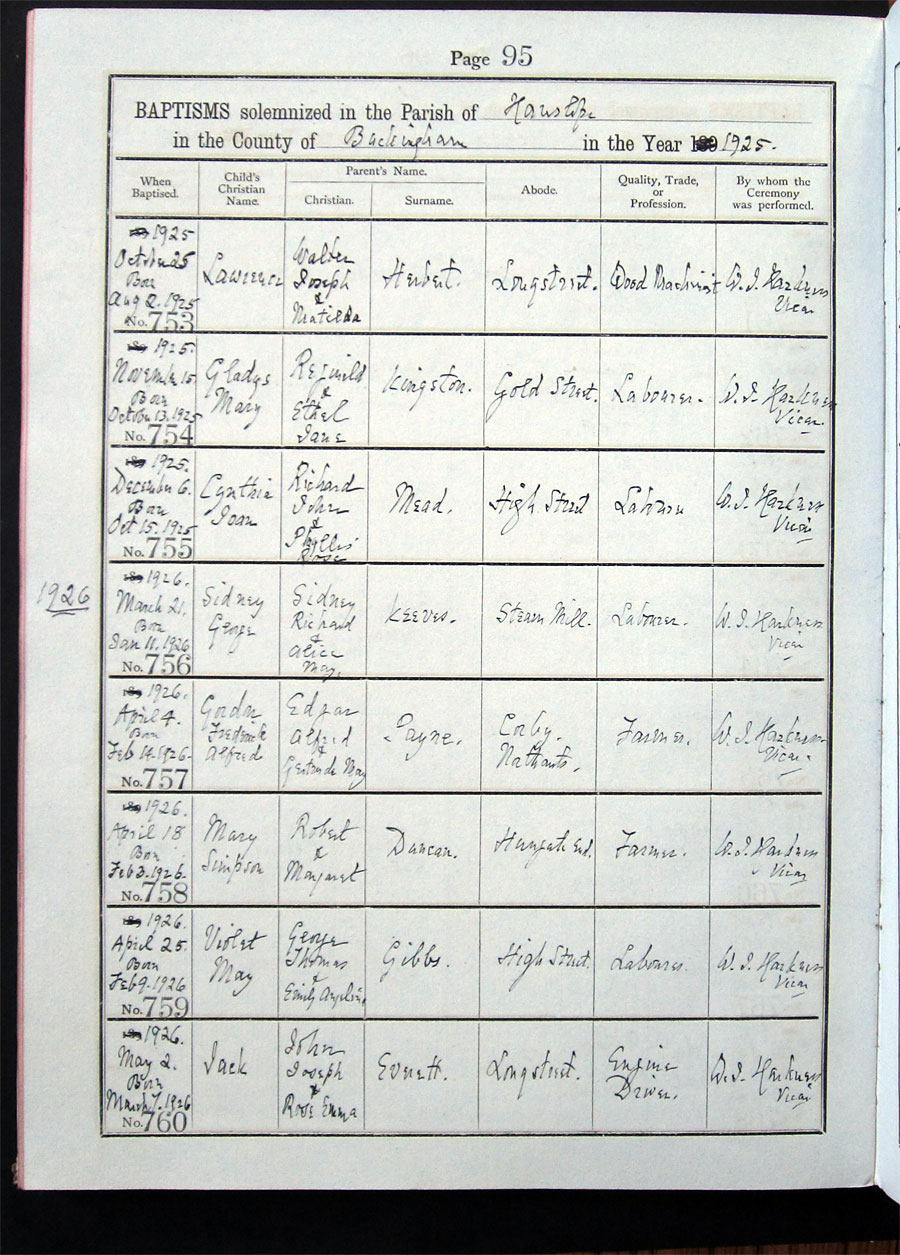 Page 95
BAPTISMS solemnized in the Parish of Hanslope
in the County of Buckingham in the Year 1925.
When Baptised.
Child's Christian Name.
Parent's Name.
Christian.
Surname.
Abode.
Quality, Trade, or Profession.
By whom the Ceremony was performed.
1925
October 25
Born
Aug 2. 1925
No. 753
Lawrence
Walter
Joseph
&
Matilda
Herbert.
Longstreet.
Wood Machinist
W. J. Harkness
Vicar
1925.
November 15.
Born
October 13. 1925
No. 754
Gladys
Mary
Reginald
&
Ethel
Jane
Kingston.
Gold Street.
Labourer.
W. J. Harkness
Vicar.
1925.
December 6.
Born
Oct 15. 1925
No. 755
Cynthia
Joan
Richard
John
&
Phyllis
Rose
Mead.
High Street
Labourer
W. J. Harkness
Vicar
1926
1926.
March 21.
Born
Jan 11. 1926
No. 756
Sidney
George
Sidney
Richard
&
Alice
May.
Keeves.
Steam Mill.
Labourer.
W. J. Harkness
Vicar
1926.
April 4.
Born
Feb 14. 1926.
No. 757
Gordon
Frederick
Alfred
Edgar
Alfred
&
Gertrude May
Payne.
Corby.
Nathants.
Farmer.
W. J. Harkness
Vicar.
1926.
April 18
Born
Feb 3. 1926.
No. 758
Mary
Simpson
Robert
&
Margaret
Duncan.
Hungate End.
Farmer.
W. J. Harkness
Vicar
1926.
April 25.
Born
Feb 9. 1926
No. 759
Violet
May
George
Thomas
&
Emily Angelina
Gibbs.
High Street.
Labourer.
W. J. Harkness
Vicar
1926.
May 2.
Born
March 7. 1926
No. 760
Jack
John
Joseph
&
Rose Emma
Everett.
Longstreet.
Engine
Driver.
W. J. Harkness
Vicar